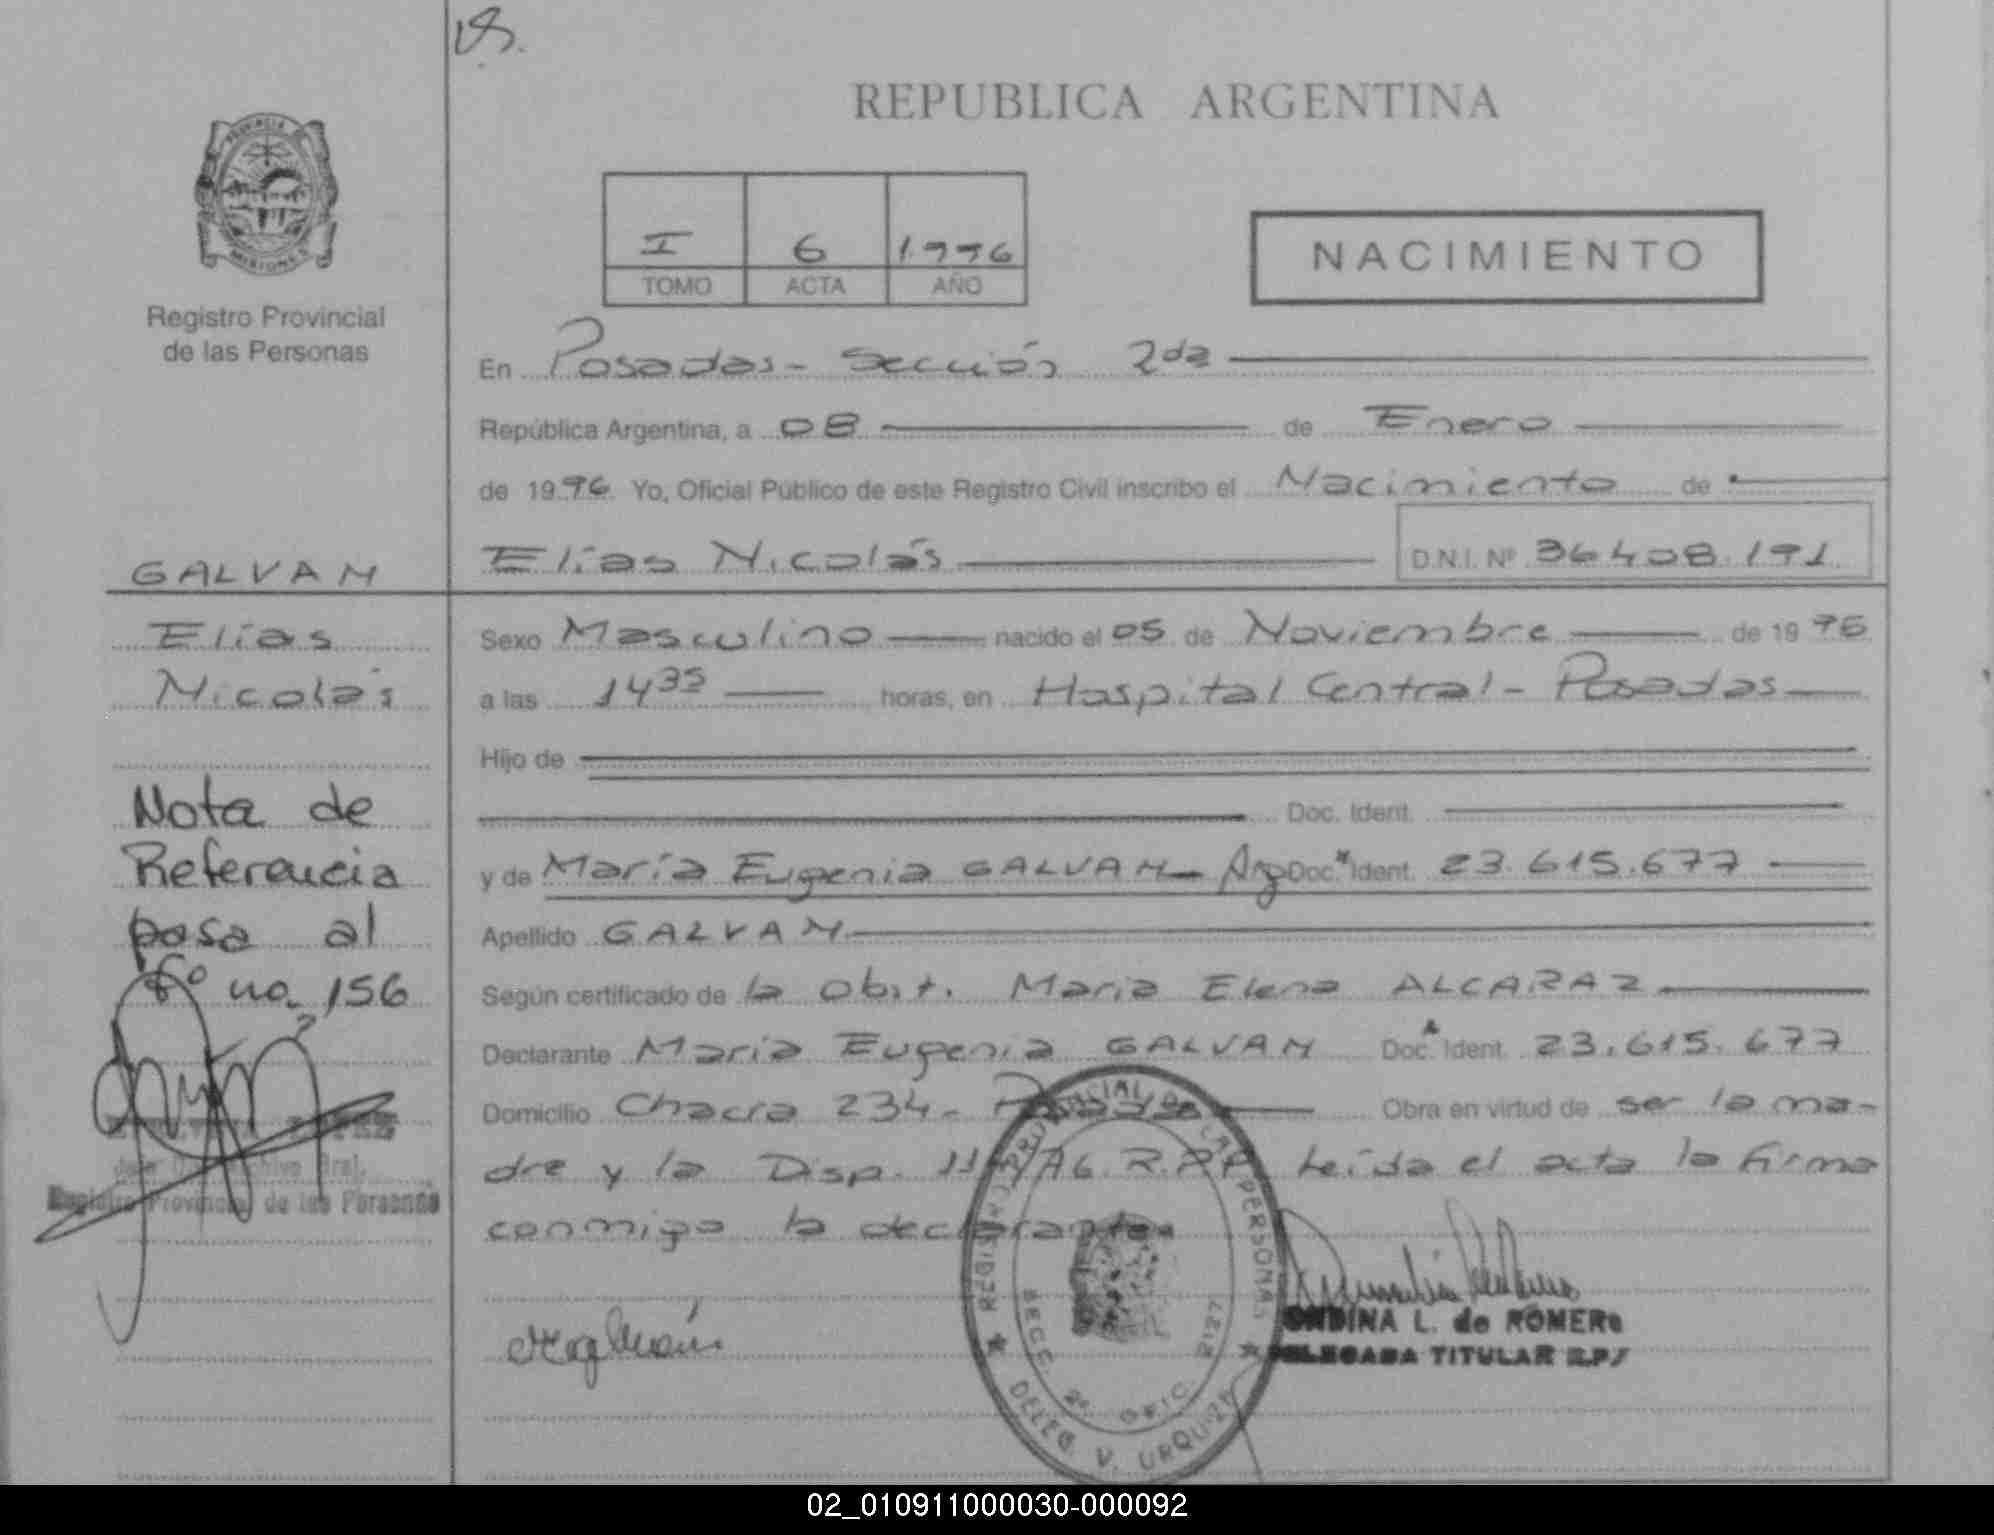 REPUBLICA ARGENTINA
PROVINCIA
MISIONES
Registro Provincial
de las Personas
I 6 1.996
TOMO ACTA AÑO
NACIMIENTO
En Posadas - Sección 2da
República Argentina, a 08 de Enero
de 1996 Yo, Oficial Público de este Registro Civil inscribo el Nacimiento de
GALVAN
Elías Nicolás D.N.I. Nº 36408.191
Elías
Nicolás
Sexo Masculino nacido el 05 de Noviembre de 19
a las 14 35 horas, en Hospital Central - Posadas
Hijo de
Doc. Ident.
y de María Eugenia GALVAN - Arg Doc. Ident. 23.615.677
Apellido GALVAN
Según certificado de la Obst. Maria Elena ALCARAZ
Declarante María Eugenia GALVAN Doc. Ident. 23.615.677
Domicilio Chacra 234 - Posadas Obra en virtud de ser la ma-
dre y la Disp. R.P.P. Leída el acta la firma
conmigo la declarante.
Nota de
Referencia
pasa al
fº no. 156
Archivo Gral.
Registro Provincial de las Personas
REGISTRO PROVINCIAL DE LAS PERSONAS
SECC. 2ª. OFIC. 2127
DELEG. V. URQUIZA
ONDINA L. de ROMERO
DELEGADA TITULAR R.P.
02_010911000030-000092